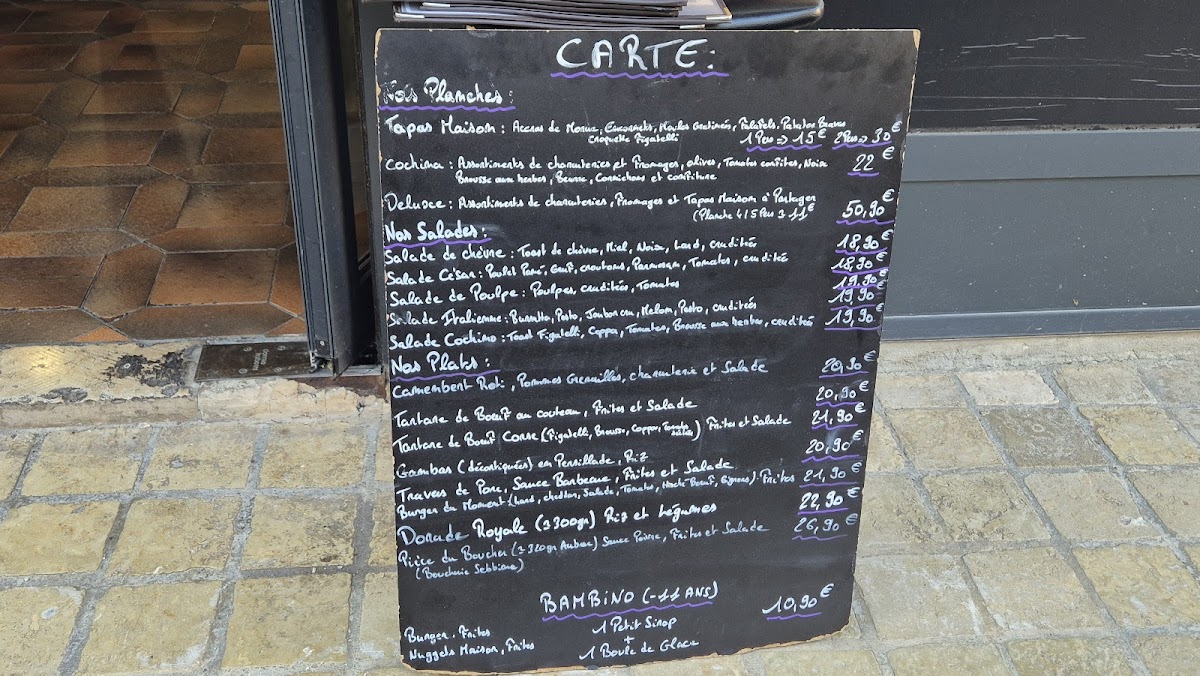 CARTE:
Nos Planches:
Tapas Maison: Accras de Morue, Encornets, Moules Gratinées, Falafels, Patatas Bravas
Croquette Figatelli 1 Pers => 15€ 2Pers => 30€
Cochina: Assortiments de charcuteries et Fromages, olives, Tomates confites, Noix 22€
Brousse aux herbes, Beurre, Cornichons et confiture
Deluxe: Assortiments de charcuteries, Fromages et Tapas Maison à Partager 50,90€
(Planche 4/5 Pers
Nos Salades:
Salade de chèvre: Toast de chèvre, Miel, Noix, Lard, crudités 18,90€
Salade César: Poulet Pané, Œuf, croutons, Parmesan, Tomates, crudités 18,90€
Salade de Poulpe: Poulpes, crudités, Tomates 19,90€
Salade Italienne: Burratta, Pesto, Jambon cru, Melon, Pesto, crudités 19,90€
Salade Cochino: Toast Figatelli, Coppa, Tomates, Brousse aux herbes, crudités 19,90€
Nos Plats:
Camembert Roti, Pommes Grenailles, charcuterie et Salade 20,90€
Tartare de Bœuf au couteau, Frites et Salade 20,90€
Tartare de Bœuf Corse (Figatelli, Brousse, Coppa, Tomate) Frites et Salade 21,90€
Gambas (décortiquées) en Persillade, Riz 20,90€
Travers de Porc, Sauce Barbecue, Frites et Salade 21,90€
Burger du Moment (buns, cheddar, Salade, Tomates, Haché Bœuf, Oignons) Frites
Dorade Royale (≃300gr) Riz et Légumes 22,90€
Pièce du Boucher (≃320gr Aubrac) Sauce Poivre, Frites et Salade 26,90€
(Boucherie Sebbione)
BAMBiNO (-11 ANS) 10,90€
Burger, Frites
Nuggets Maison, Frites
1 Petit Sirop
+
1 Boule de Glace